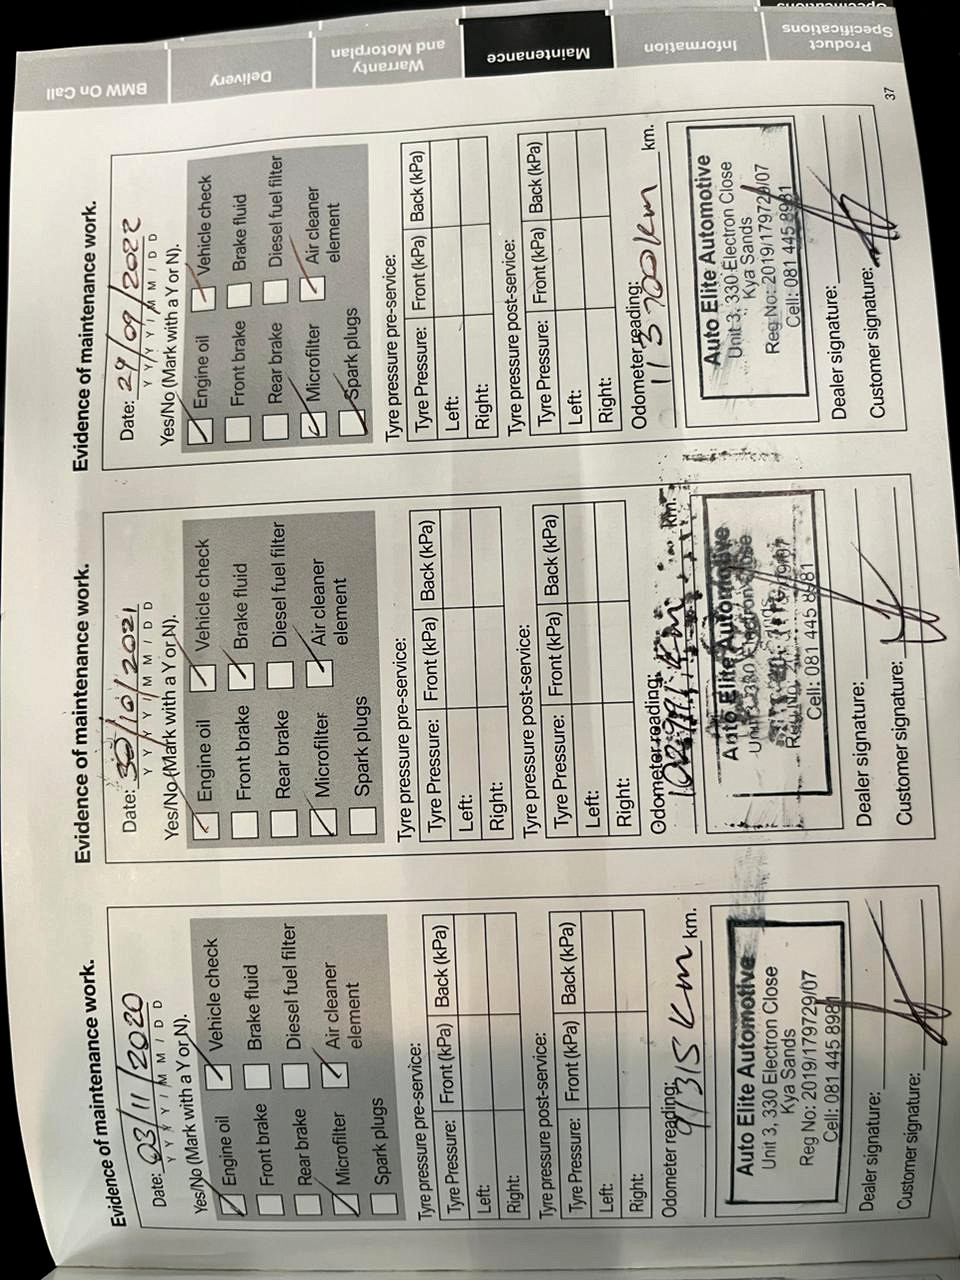 Evidence of maintenance work.
Date: 03/11/2020
Y Y Y Y / M M / D D
Yes/No (Mark with a Y or N).
Engine oil Vehicle check
Front brake Brake fluid
Rear brake Diesel fuel filter
Microfilter Air cleaner
element
Spark plugs
Tyre pressure pre-service:
Tyre Pressure: Front (kPa) Back (kPa)
Left:
Right:
Tyre pressure post-service:
Tyre Pressure: Front (kPa) Back (kPa)
Left:
Right:
Odometer reading:
91315 Km km.
Auto Elite Automotive
Unit 3, 330 Electron Close
Kya Sands
Reg No: 2019/179729/07
Cell: 081 445 8981
Dealer signature:
Customer signature:
Evidence of maintenance work.
Date: 30/10/2021
Y Y Y Y / M M / D D
Yes/No (Mark with a Y or N).
Engine oil Vehicle check
Front brake Brake fluid
Rear brake Diesel fuel filter
Microfilter Air cleaner
element
Spark plugs
Tyre pressure pre-service:
Tyre Pressure: Front (kPa) Back (kPa)
Left:
Right:
Tyre pressure post-service:
Tyre Pressure: Front (kPa) Back (kPa)
Left:
Right:
Odometer reading:
Km km.
Auto Elite Automotive
Cell: 081 445 8981
Dealer signature:
Customer signature:
Evidence of maintenance work.
Date: 29/09/2022
Y Y Y Y / M M / D D
Yes/No (Mark with a Y or N).
Engine oil Vehicle check
Front brake Brake fluid
Rear brake Diesel fuel filter
Microfilter Air cleaner
element
Spark plugs
Tyre pressure pre-service:
Tyre Pressure: Front (kPa) Back (kPa)
Left:
Right:
Tyre pressure post-service:
Tyre Pressure: Front (kPa) Back (kPa)
Left:
Right:
Odometer reading:
113700km km.
Auto Elite Automotive
Unit 3, 330 Electron Close
Kya Sands
Reg No: 2019/179729/07
Cell: 081 445 8981
Dealer signature:
Customer signature:
37
BMW On Call
Delivery
Warranty
and Motorplan
Maintenance
Information
Product
Specifications